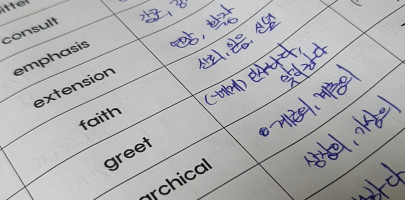 consult
emphasis
강조,
extension
연장, 확장
faith
신뢰, 믿음, 신념
greet
(~에게) 인사하다,
맞이하다
archical
계급의, 계층의
상상의, 가상의